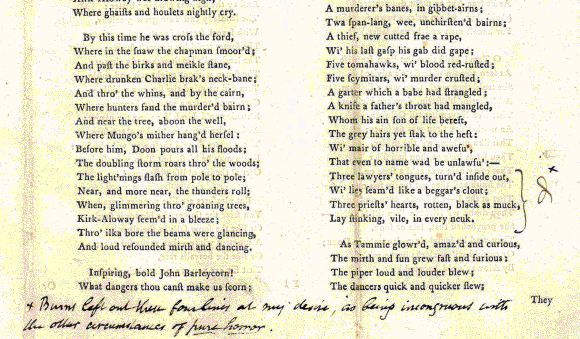 Where ghaists and houlets nightly cry.
By this time he was croſs the ford,
Where in the ſnaw the chapman ſmoor'd;
And paſt the birks and meikle ſtane,
Where drunken Charlie brak's neck-bane;
And thro' the whins, and by the cairn,
Where hunters fand the murder'd bairn;
And near the tree, aboon the well,
Where Mungo's mither hang'd herſel:
Before him, Doon pours all his floods;
The doubling ſtorm roars thro' the woods;
The light'nings flaſh from pole to pole;
Near, and more near, the thunders roll;
When, glimmering thro' groaning trees,
Kirk-Aloway ſeem'd in a bleeze;
Thro' ilka bore the beams were glancing,
And loud reſounded mirth and dancing.
Inſpiring, bold John Barleycorn!
What dangers thou canſt make us ſcorn;
A murderer's banes, in gibbet-airns;
Twa ſpan-lang, wee, unchirſten'd bairns;
A thief, new cutted frae a rape,
Wi' his laſt gaſp his gab did gape;
Five tomahawks, wi' blood red-ruſted;
Five ſcymitars, wi' murder cruſted;
A garter which a babe had ſtrangled;
A knife a father's throat had mangled,
Whom his ain ſon of life bereft,
The grey hairs yet ſtak to the heft:
Wi' mair of horrible and awefu',
That even to name wad be unlawfu':—
Three lawyers' tongues, turn'd inſide out,
Wi' lies ſeam'd like a beggar's clout;
Three prieſts' hearts, rotten, black as muck,
Lay ſtinking, vile, in every neuk.
As Tammie glowr'd, amaz'd and curious,
The mirth and fun grew faſt and furious:
The piper loud and louder blew;
The dancers quick and quicker flew;
They
+ Burns left out these four lines at my desire, as being incongruous with
the other circumstances of pure horror.